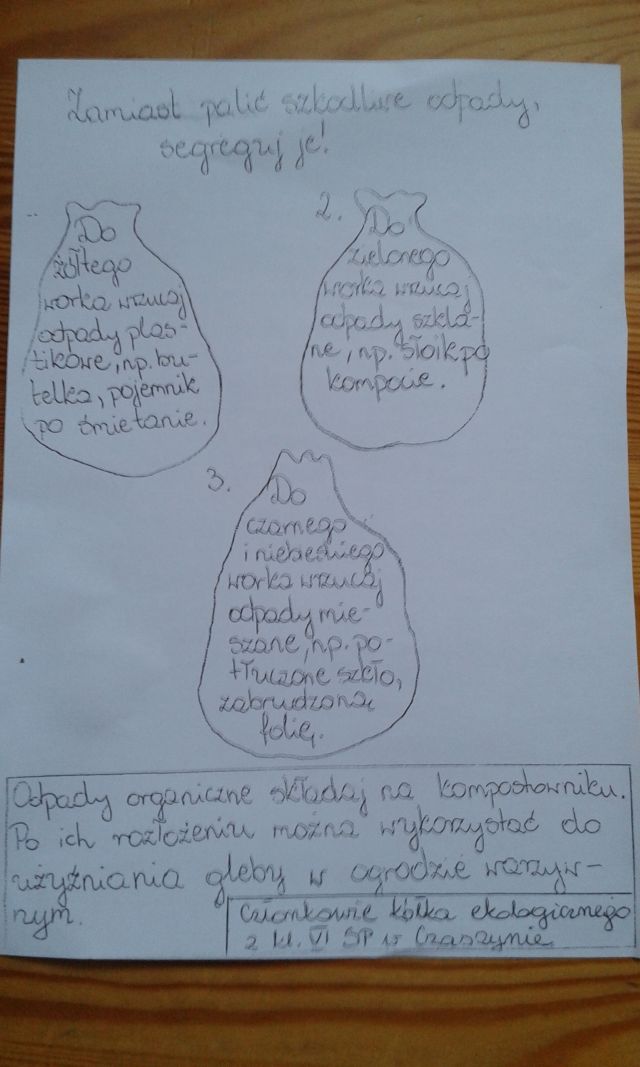 Zamiast palić szkodliwe odpady,
segreguj je!
Do
żółtego
worka wrzucaj
odpady plas-
tikowe, np. bu-
telka, pojemnik
po śmietanie.
2.
Do
zielonego
worka wrzucaj
odpady szkla-
ne, np. słoik po
kompocie.
3.
Do
czarnego
i niebieskiego
worka wrzucaj
odpady mie-
szane, np. po-
tłuczone szkło,
zabrudzoną
folię.
Odpady organiczne składaj na kompostowniku.
Po ich rozłożeniu można wykorzystać do
użyźniania gleby w ogrodzie warzyw-
nym.
Członkowie kółka ekologicznego
z kl. VI SP w Czaszynie